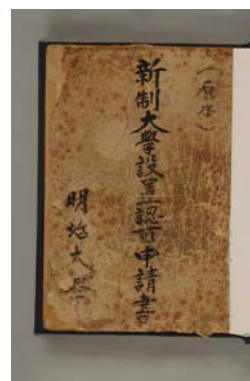 （原本）
新制大學設置認可申請書
明治大學